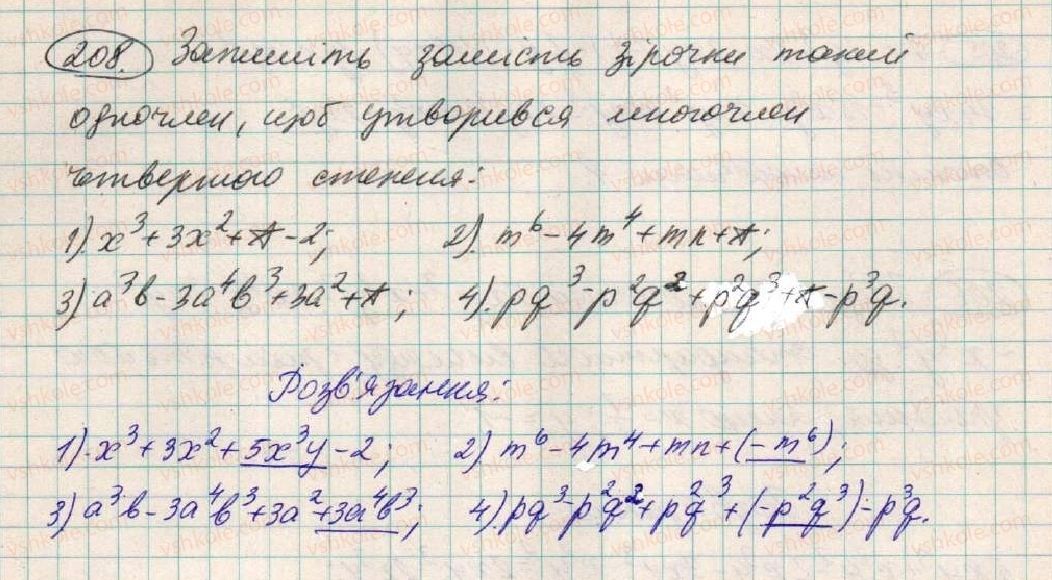 208. Запишіть замість зірочки такий
одночлен, щоб утворився многочлен
четвертого степеня:
1). x³ + 3x² + * - 2; 2). m⁶ - 4m⁴ + mn + *;
3) a³b - 3a⁴b³ + 3a² + *; 4). pq³ - p²q² + p²q³ + * - p³q.
Розв'язання:
1). x³ + 3x² + 5x³y - 2; 2). m⁶ - 4m⁴ + mn + (-m⁶);
3) a³b - 3a⁴b³ + 3a² + 3a⁴b³; 4) pq³ - p²q² + p²q³ + (-p²q³) - p³q.